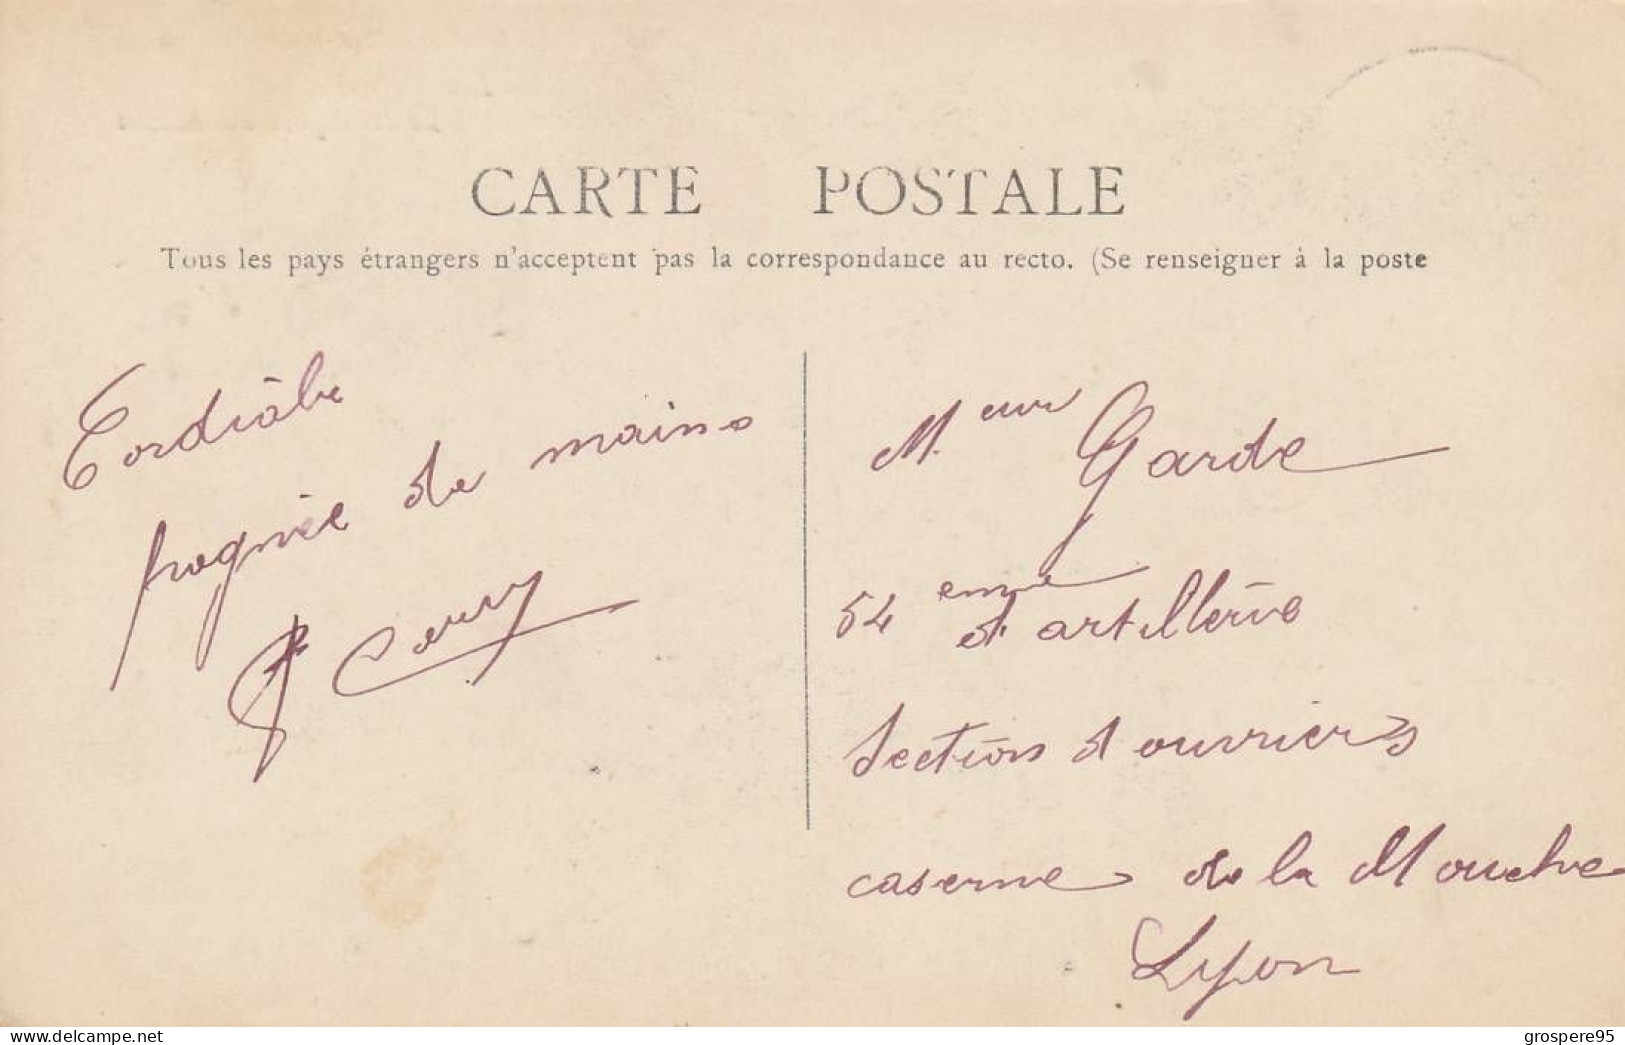 CARTE POSTALE
Tous les pays étrangers n'acceptent pas la correspondance au recto. (Se renseigner à la poste
Cordiale
pognée de mains
M.eur Garde
54 eme d'artillerie
Section d ouvriers
caserne de la Mouche
Lyon
www.delcampe.net
grospere95